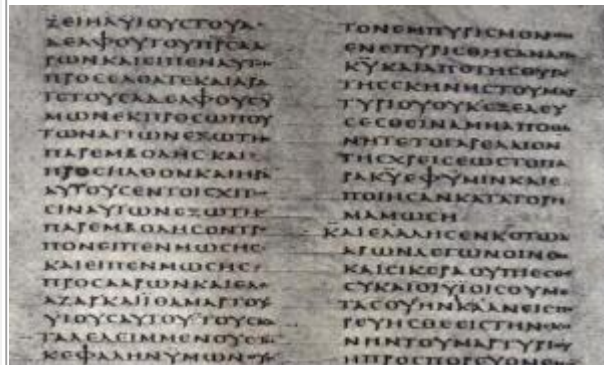 ΖΕΙΗΛΥΙΟΥϹΤΟΥΑ
ΔΕΛΦΟΥΤΟΥΠΡϹΑΑ
ΡΩΝΚΑΙΕΙΠΕΝΑΥΤ
ΠΡΟϹΕΛΘΑΤΕΚΑΙΑΡΑ
ΤΕΤΟΥϹΑΔΕΛΦΟΥϹΥ
ΜΩΝΕΚΠΡΟϹΩΠΟΥ
ΤΩΝΑΓΙΩΝΕΞΩΤΗ
ΠΑΡΕΜΒΟΛΗϹΚΑΙ
ΠΡΟϹΗΛΘΟΝΚΑΙΗΡΑ
ΑΥΤΟΥϹΕΝΤΟΙϹΧΙΤ
ϹΙΝΑΥΤΩΝΕΞΩΤΗ
ΠΑΡΕΜΒΟΛΗϹΟΝΤΡ
ΠΟΝΕΙΠΕΝΜΩϹΗϹ
ΚΑΙΕΙΠΕΝΜΩϹΗϹ
ΠΡΟϹΑΑΡΩΝΚΑΙΕΛΕ
ΑΖΑΡΚΑΙΪΘΑΜΑΡΤΟΥ
ΥΙΟΥϹΑΥΤΟΥΤΟΥϹΚΑ
ΤΑΛΕΛΕΙΜΜΕΝΟΥϹ
ΚΕΦΑΛΗΝΥΜΩΝ
ΤΟΝΕΜΠΥΡΙϹΜΟΝ
ΕΝΕΠΥΡΙϹΘΗϹΑΝ
ΚΥΚΑΙΑΠΟΤΗϹΘΥΡ
ΤΗϹϹΚΗΝΗϹΤΟΥΜΑΡ
ΤΥΡΙΟΥΟΥΚΕΞΕΛΕΥ
ϹΕϹΘΕΙΝΑΜΗΑΠΟΘΑ
ΝΗΤΕΤΟΓΑΡΕΛΑΙΟΝ
ΤΗϹΧΡΕΙϹΕΩϹΤΟΠΑ
ΡΑΚΥΕΦΥΜΙΝΚΑΙΕ
ΠΟΙΗϹΑΝΚΑΤΑΤΟΡΗ
ΜΑΜΩϹΗ
ΚΑΙΕΛΑΛΗϹΕΝΚϹΤΩΑ
ΑΡΩΝΛΕΓΩΝΟΙΝΟ
ΚΑΙϹΙΚΕΡΑΟΥΠΙΕϹ
ϹΥΚΑΙΟΙΥΙΟΙϹΟΥΜ
ΤΑϹΟΥΗΝΚΑΑΝΕΙϹΠ
ΡΕΥΗϹΘΕΕΙϹΤΗΝ
ΝΗΝΤΟΥΜΑΡΤΥΡΙ
ΗΠΡΟϹΠΟΡΕΥΟΜΕ